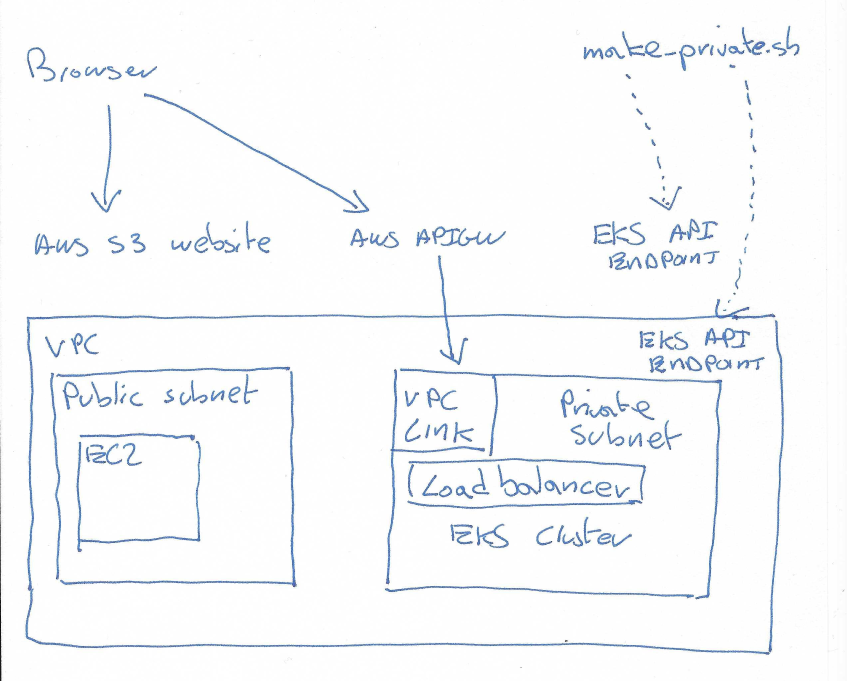 make_private.sh
Browser
AWS S3 website
AWS APIGW
EKS API
ENDPOINT
VPC
EKS API
ENDPOINT
Public subnet
EC2
VPC
Link
Private
Subnet
Load balancer
EKS Cluster